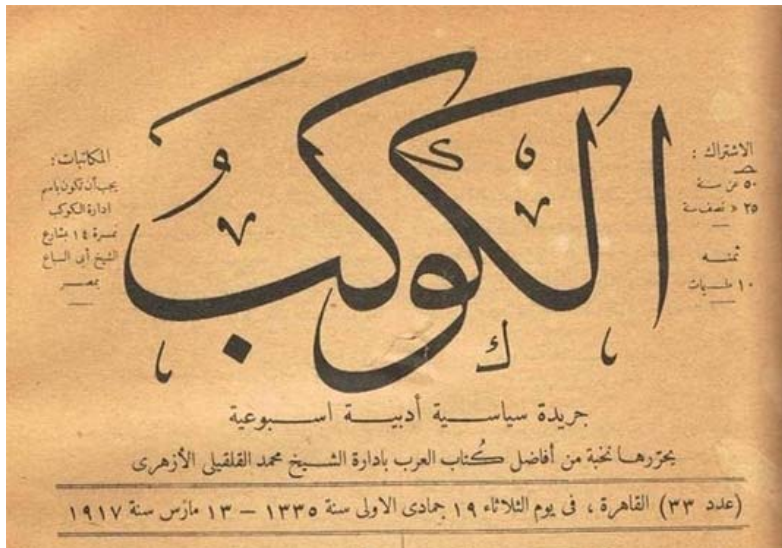 الكوكب
الاشتراك :
٥٠ عن سنة
٢٥ « نصف سنة
ثمنه
١٠ مليمات
المكاتبات :
يجب أن تكون باسم
ادارة الكوكب
نمرة ١٤ بشارع
الشيخ أبى السباع
بمصر
جريدة سياسية أدبية اسبوعية
يحررها نخبة من أفاضل كُتاب العرب بادارة الشيخ محمد القلقيلى الأزهرى
(عدد ٣٣) القاهرة ، فى يوم الثلاثاء ١٩ جمادى الاولى سنة ١٣٣٥ – ١٣ مارس سنة ١٩١٧